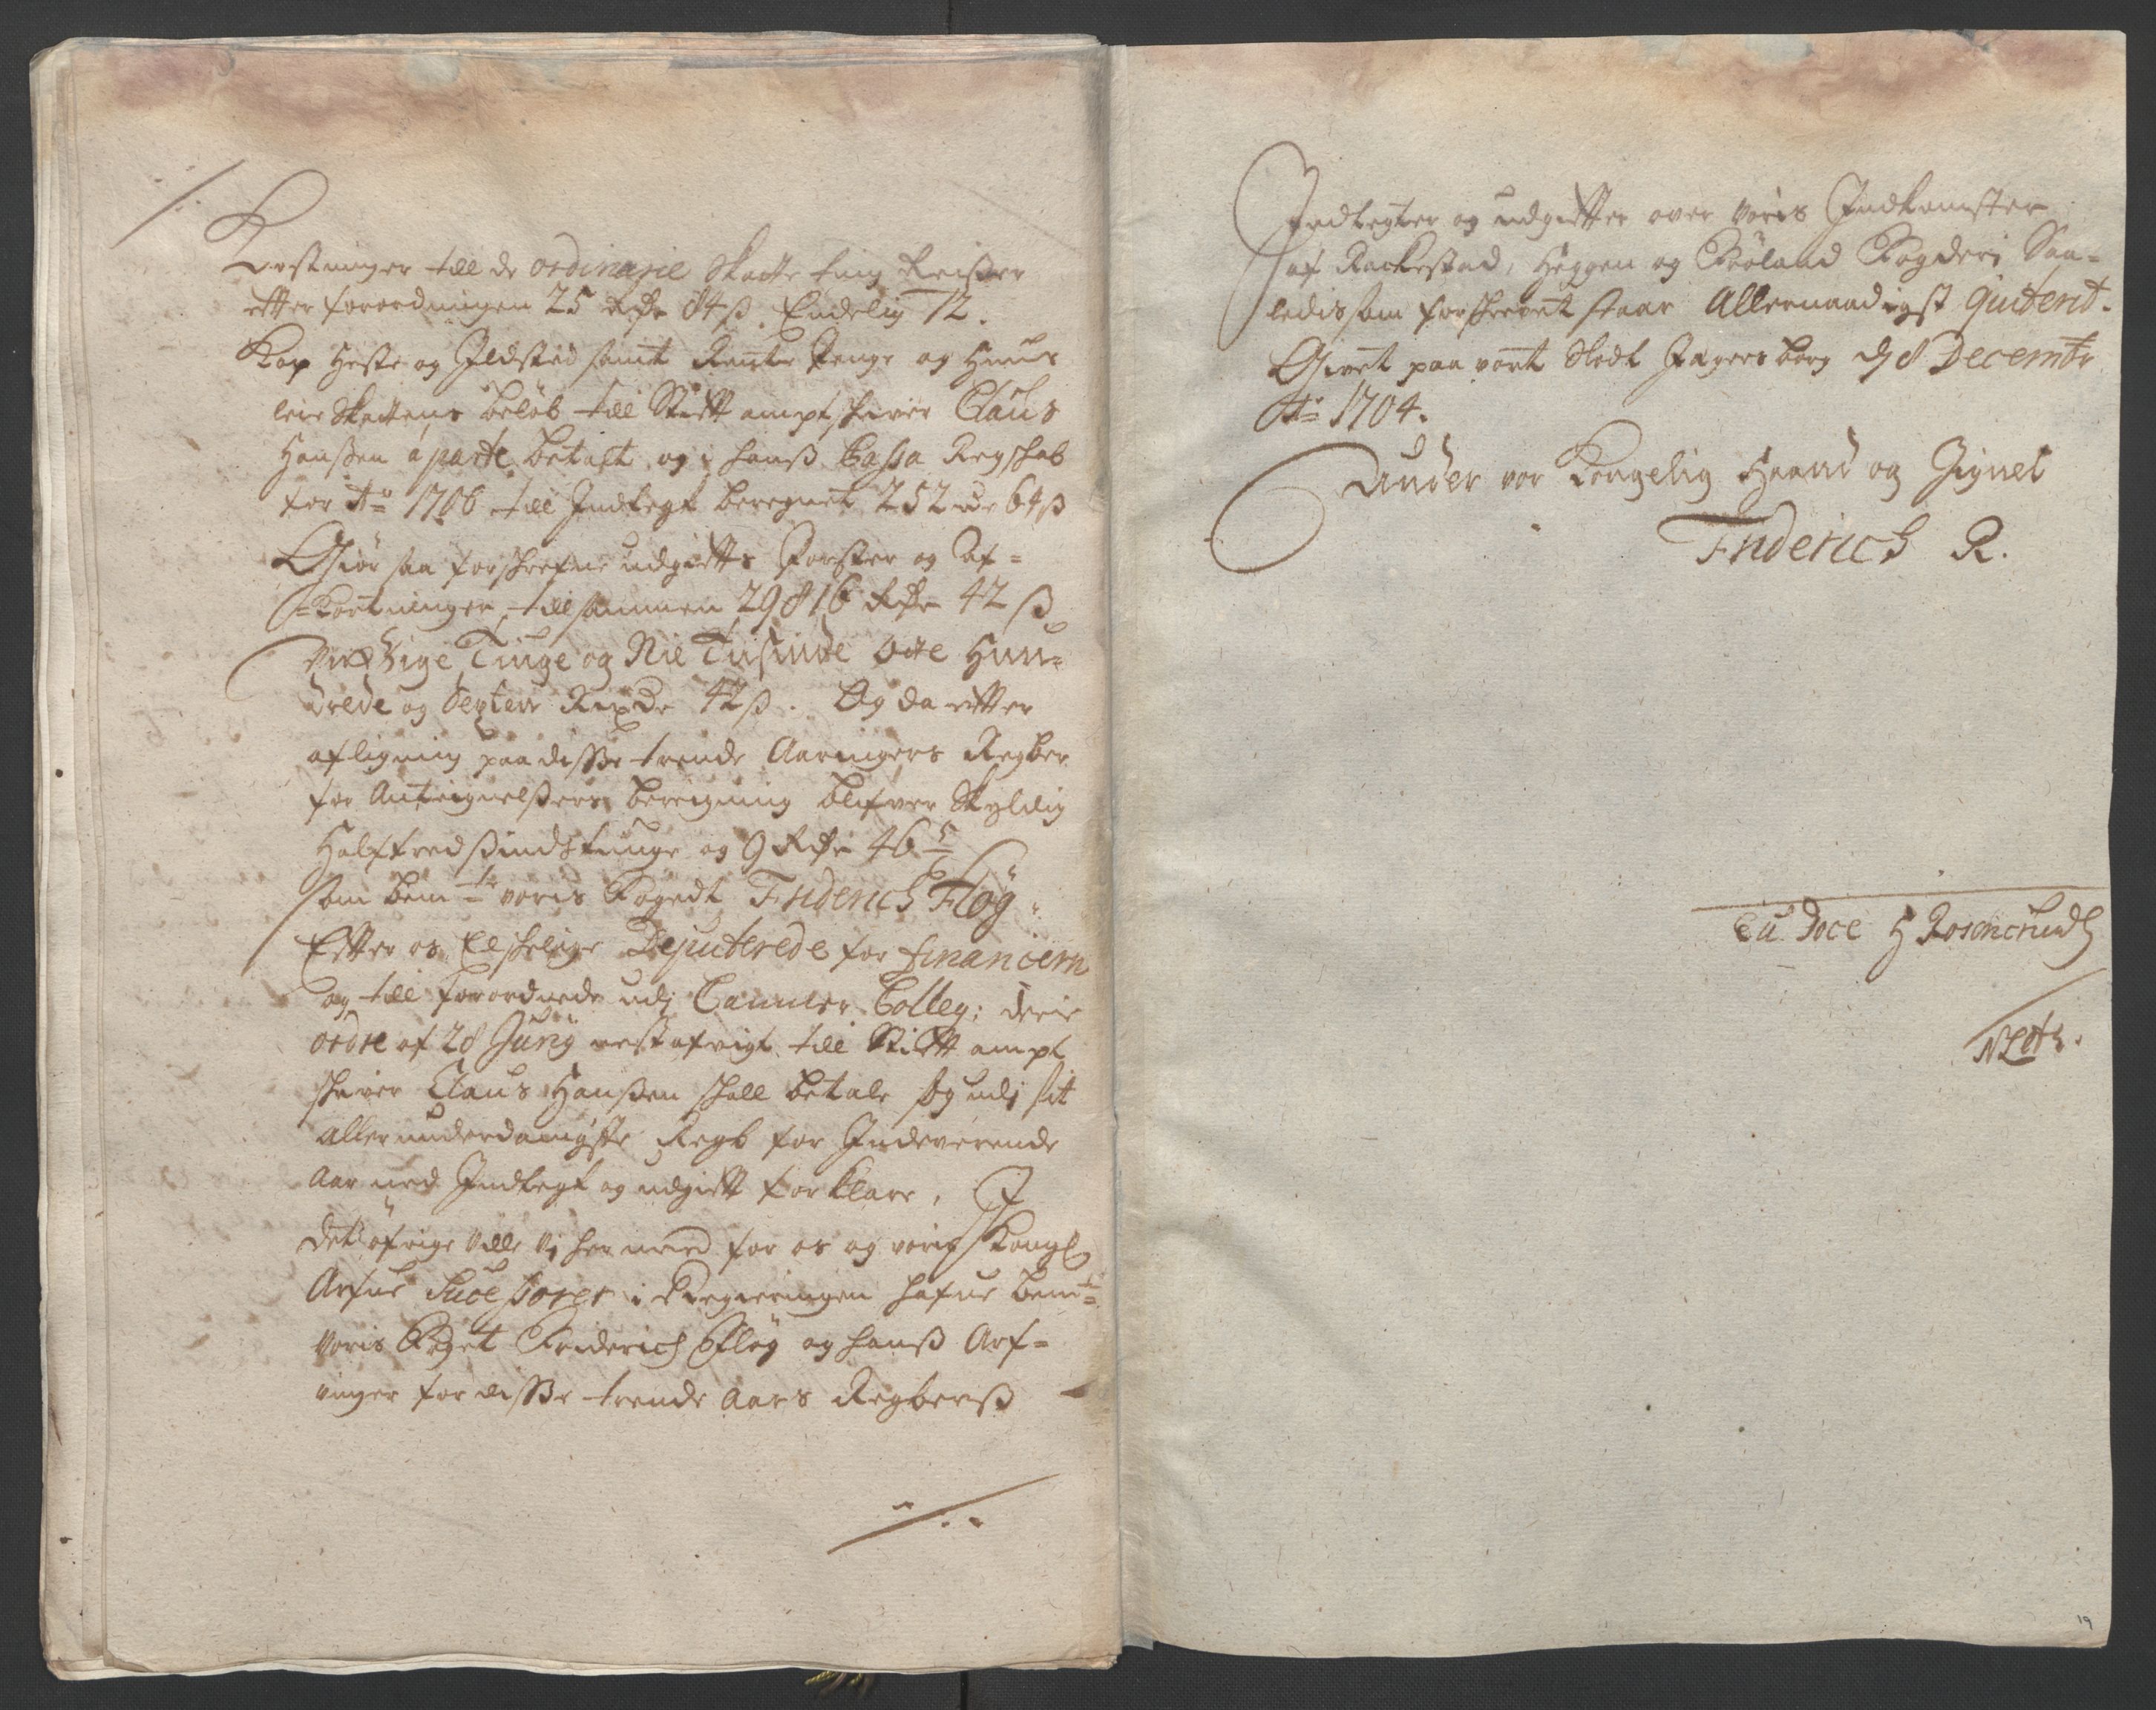 Kostninger till de ordinarie Skatte ting Reiser
etter forordningen 25 Rdr 84 ß. Endelig 12.
Kop Heste og Ildsted samt Rente Penge og Huus
leie Skattens beløb till Stiftampt skriver Claus
Hanßen a parte betalt, og i hanß Cassa Regskab
for Ao 1706 till Indtegt beregnet 252 Rdr 64 ß
Giør saa forschrefne udgiffts Poster og Af=
=kortninger tillsammen 29816 Rdr 42 ß
Tiuge og Nie Tusinde Otte Hun=
drede og Sexten Rixdr 42 ß. Og da efter
afligning paa disse trende Aaringers Regber
for Antegnelßers beregning blifver Skyldig
Halftredßindstiuge og 9 Rdr 46 ß
som bemte voris Fogedt Friderich Fløg
Efter os Elskelige Deputerede for Financern
og till forordnede udj Cammer Colleg: deris
ordre af 28 Junij till Stifft ampt
skriver Claus Hanßen skall betale og udj sit
allerunderdanigste Regb for Indeverende
Aar med Indtegt og udgifft forklare, I
det øfrige ville Vj hermed for os og voris Kongl
Arfue Sucessorer i Regieringen hafue bemte
voris Foget Friderich Fløg og hanß Arf=
vinger for disse trende Aars Regberß
Indtegter og udgiffter over voris Indkomster
af Rackestad, Heggen og Frøland Fogderi Saa=
ledis som forskrevet staar Allernaadigst quiterit.
Givet paa vort Slodt Jægersborg d 8 Decembr
Ao 1704.
Under vor Kongelig Haand og Signet
Friderich R.
H Rosencrudtz
19